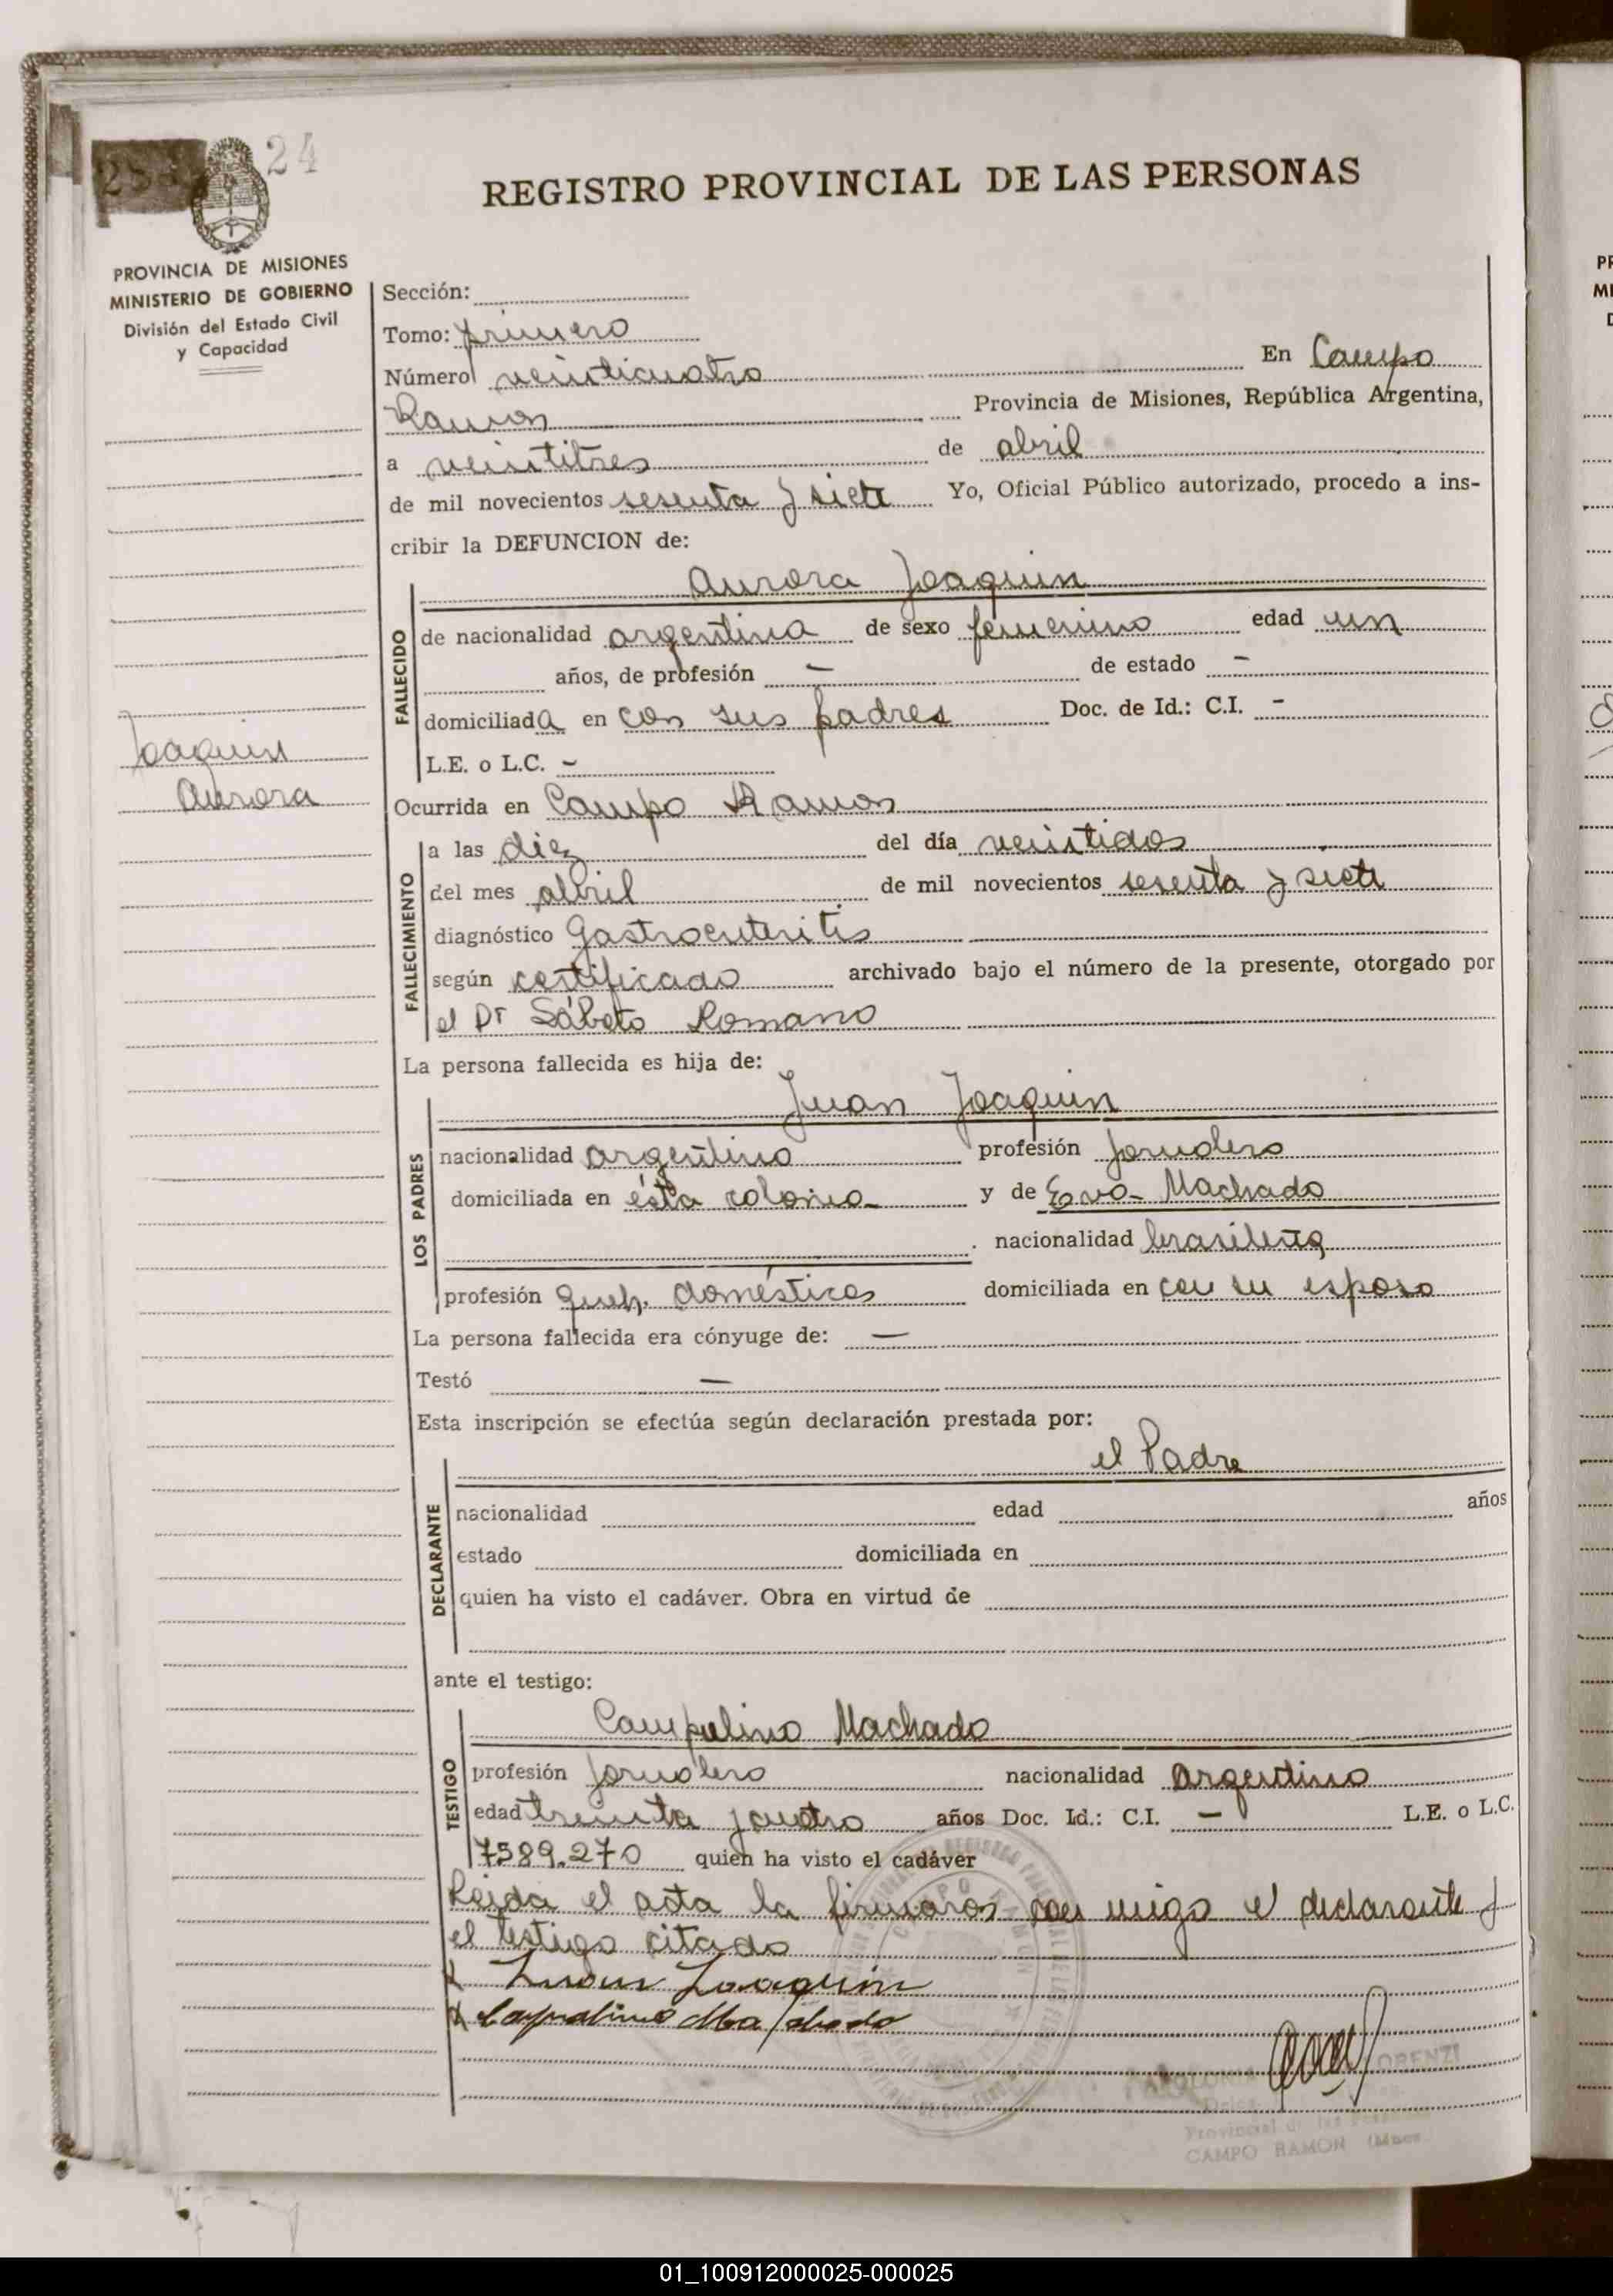 24
REGISTRO PROVINCIAL DE LAS PERSONAS
PROVINCIA DE MISIONES
MINISTERIO DE GOBIERNO
División del Estado Civil
y Capacidad
Joaquin
Aurora
Sección:
Tomo: primero
Número veinticuatro En Campo
Ramon Provincia de Misiones, República Argentina,
a veintitres de abril
de mil novecientos sesenta y siete Yo, Oficial Público autorizado, procedo a ins-
cribir la DEFUNCION de:
Aurora Joaquin
FALLECIDO
de nacionalidad argentina de sexo femenino edad un
años, de profesión — de estado —
domiciliada en con sus padres Doc. de Id.: C.I. -
L.E. o L.C. -
Ocurrida en Campo Ramon
FALLECIMIENTO
a las diez del día veintidos
del mes abril de mil novecientos sesenta y siete
diagnóstico Gastroenteritis
según certificado archivado bajo el número de la presente, otorgado por
el Dr Sábato Romano
La persona fallecida es hija de:
Juan Joaquin
LOS PADRES
nacionalidad argentino profesión jornalero
domiciliada en ésta colonia y de Eva Machado
nacionalidad brasileña
profesión queh. domésticos domiciliada en con su esposo
La persona fallecida era cónyuge de: —
Testó —
Esta inscripción se efectúa según declaración prestada por:
el Padre
DECLARANTE
nacionalidad edad años
estado domiciliada en
quien ha visto el cadáver. Obra en virtud de
ante el testigo:
Campolino Machado
TESTIGO
profesión jornalero nacionalidad argentino
edad treinta y cuatro años Doc. Id.: C.I. — L.E. o L.C.
7589.270 quien ha visto el cadáver
Leida el acta la firmaron con migo el declarante y
el testigo citado
Juan Joaquin
Machado
LORENZI
Provincial de las
CAMPO RAMON (Mnes
01_100912000025-000025